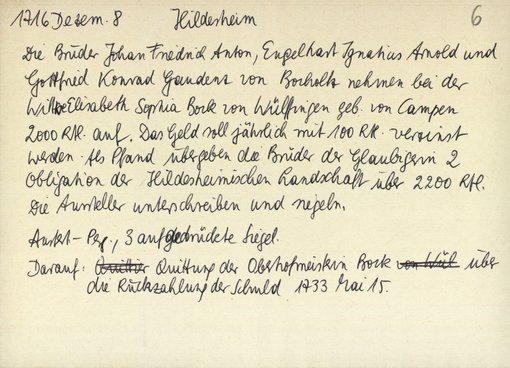 1716 Dezem. 8 Hildesheim 6
Die Brüder Johan Friedrich Anton, Engelhart Ignatius Arnold und
Gottfried Konrad Gaudenz von Bocholtz nehmen bei der
Witwe Elisabeth Sophia Bock von Wülfingen geb. von Campen
2000 Rtl. auf. Das Geld soll jährlich mit 100 Rtl. verzinst
werden. Als Pfand übergeben die Brüder der Gläubigerin 2
Obligation der Hildesheimischen Landschaft über 2200 Rtl.
Die Aussteller unterschreiben und siegeln.
Ausf.- Pg., 3 aufgedrückte Siegel.
Darauf: Quittu Quittung der Oberhofmeisterin Bock von Wül über
die Rückzahlung der Schuld 1733 Mai 15.